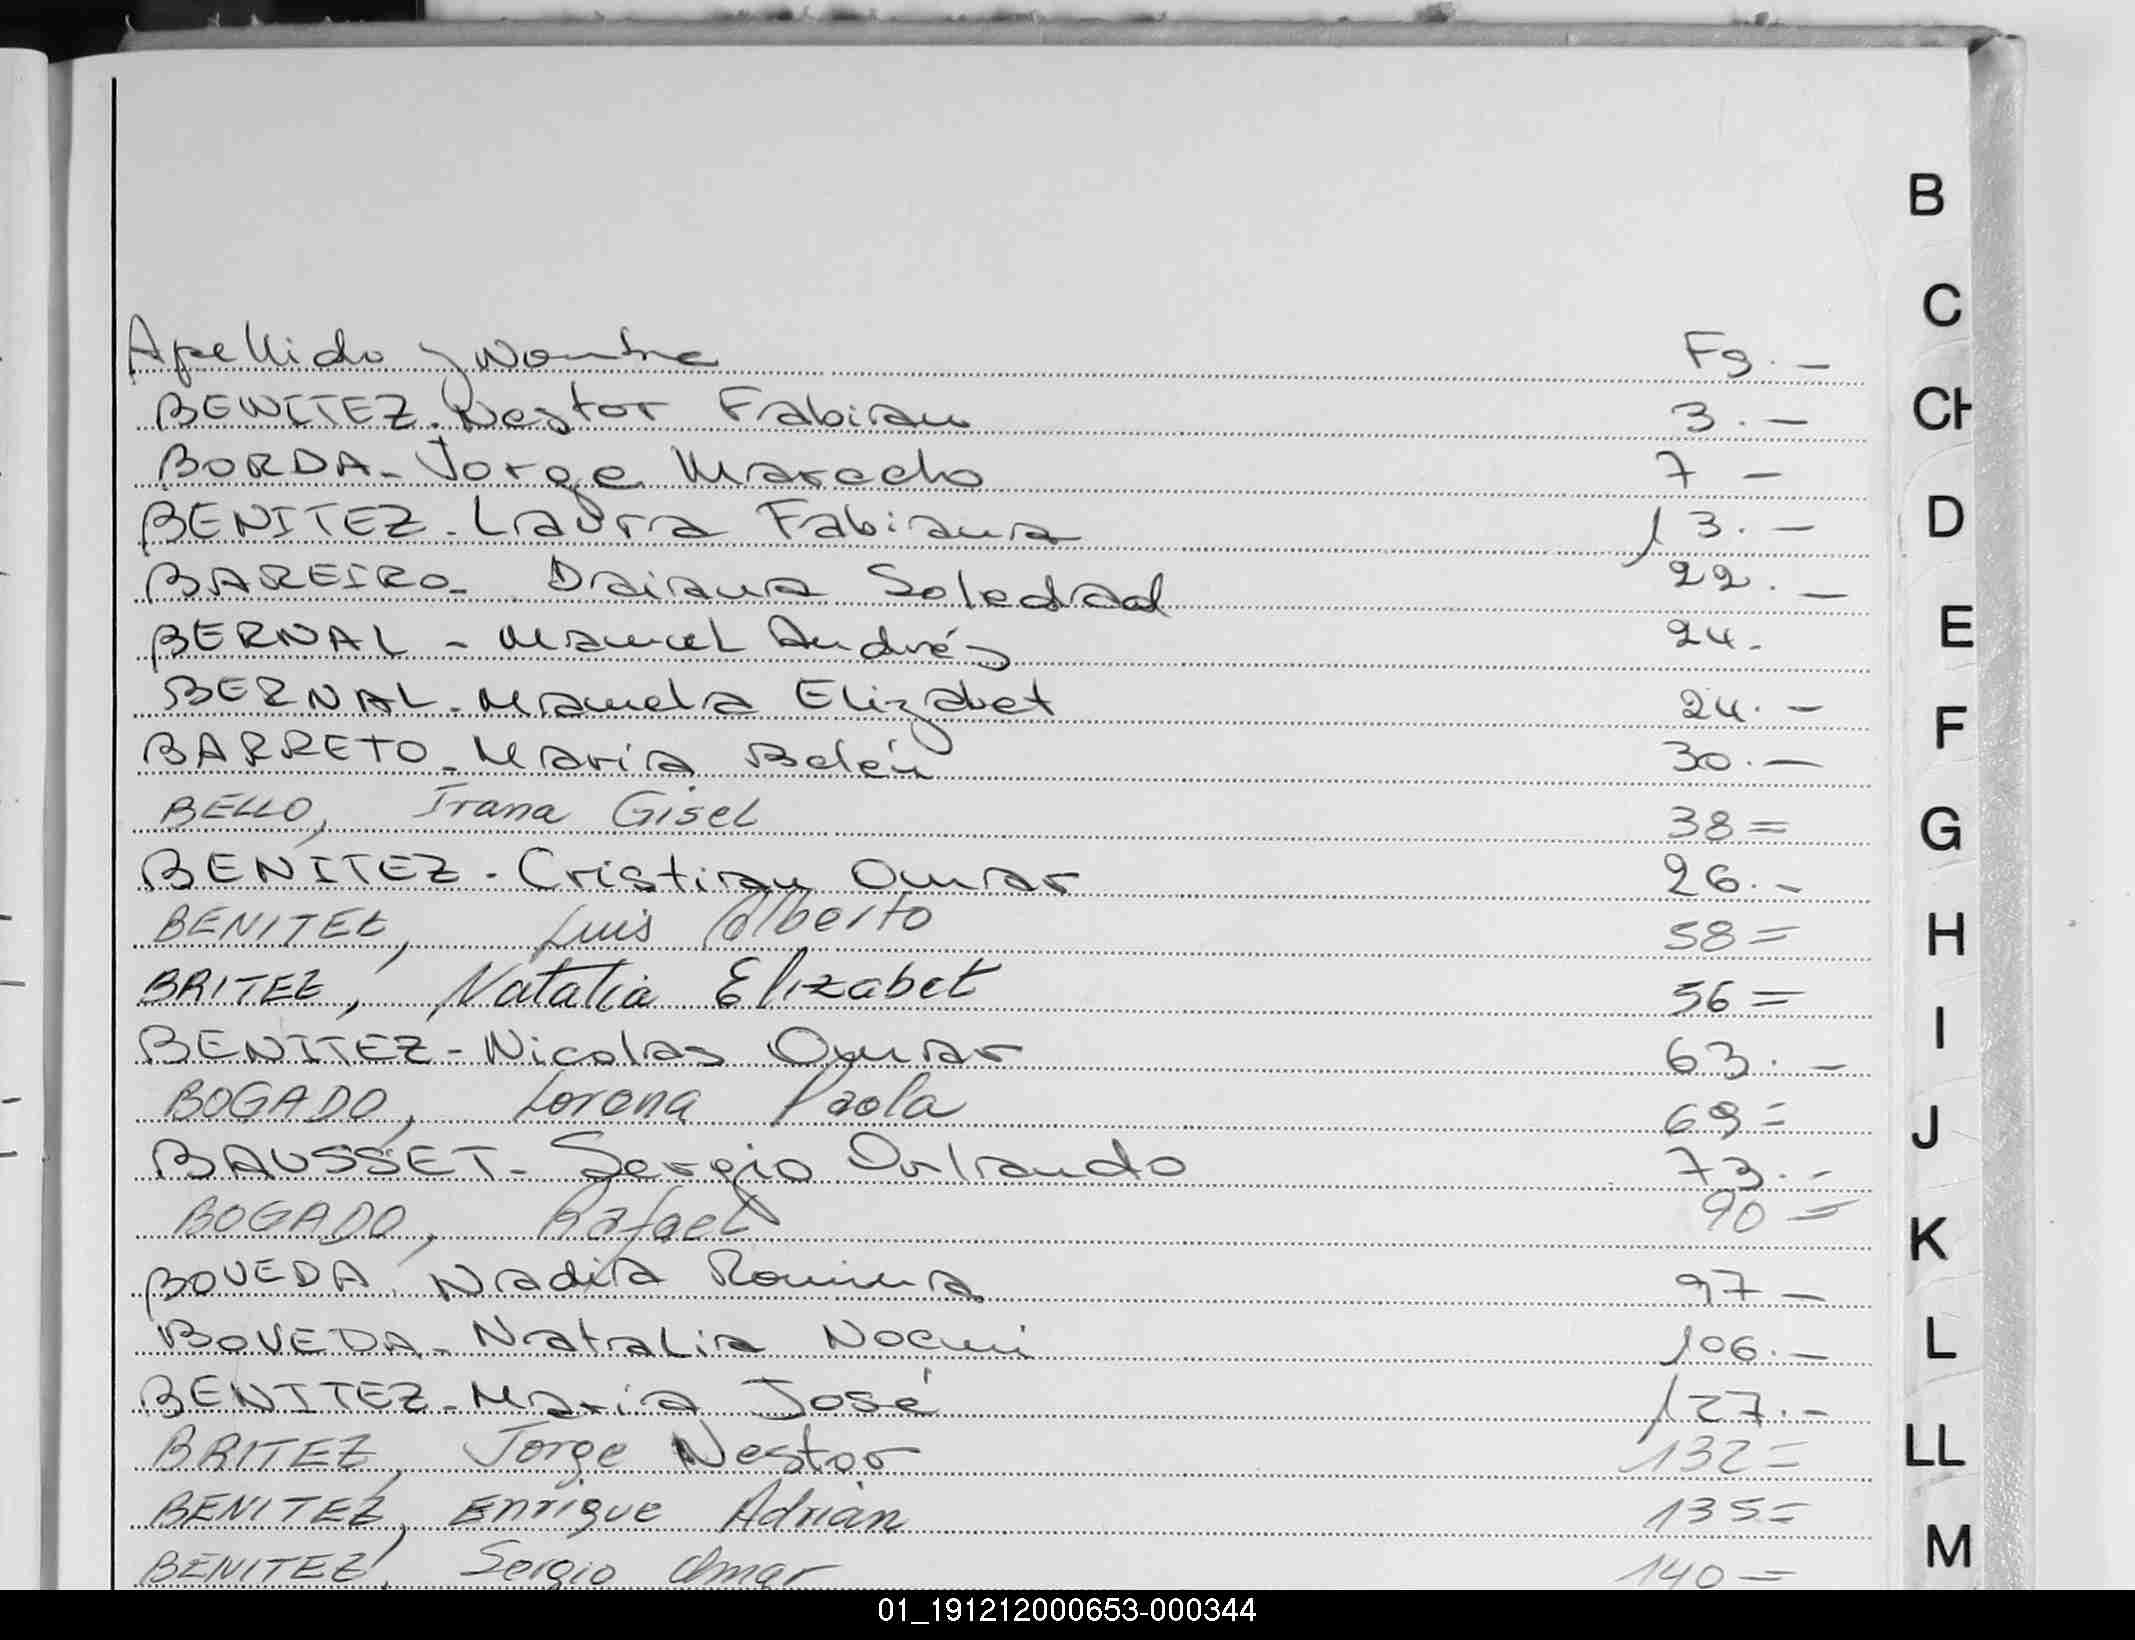 Apellido y Nombre Fs. -
BENITEZ. Nestor Fabian 3. -
BORDA - Jorge Marcelo 7 -
BENITEZ - Laura Fabiana 13. -
BAREIRO - Daiana Soledad 22. -
BERNAL - Manuel Andrés 24.
BERNAL - Manuela Elizabet 24. -
BARRETO - María Belén 30. -
BELLO, Irana Gisel 38=
BENITEZ - Cristian Omar 26. -
BENITEZ, Luis Alberto 58=
BRITEZ, Natalia Elizabet 56=
BENITEZ - Nicolas Omar 63. -
BOGADO, Lorena Paola 69=
BAUSSET - Sergio Orlando 73. -
BOGADO, Rafael 90=
BOVEDA, Nadia Romina 97 -
BOVEDA - Natalia Noemi 106. -
BENITEZ - Maria José 127. -
BRITEZ, Jorge Nestor 132=
BENITEZ, Enrique Adrián 135=
BENITEZ, Sergio Omar 140=
B
C
CH
D
E
F
G
H
I
J
K
L
LL
M
01_191212000653-000344